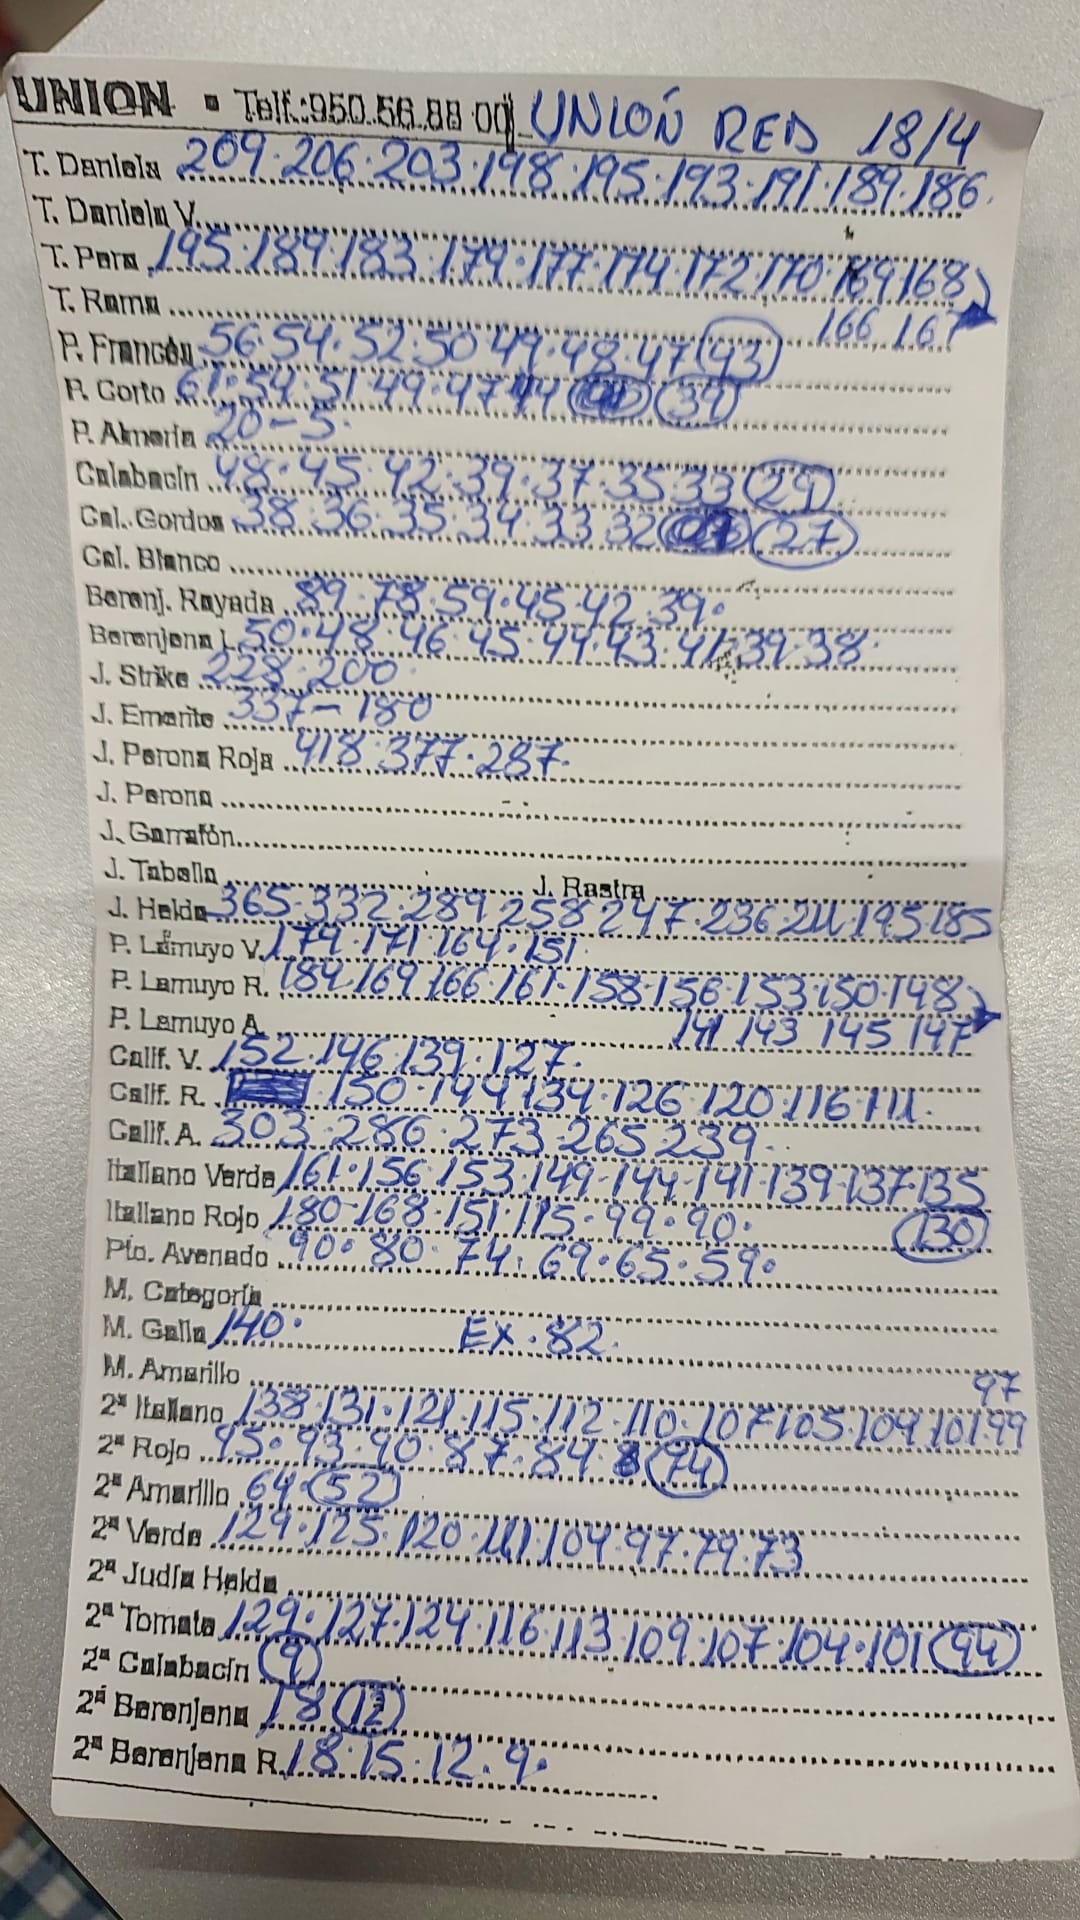 UNION - Telf.:950.56.88 00 UNIÓN RED 18/4
T. Daniela 209.206.203.198.195.193.191.189.186.
T. Daniela V.
T. Pera 195.189.183.179.177.174.172.170.169.168
T. Rama 166 167
P. Francés 56.54.52.50 49.48.47 (43)
P. Corto 61.54.51 49.47 44 (39)
P. Almería 20-5.
Calabacín 48.45.42.39.37.35 33 (29)
Cal. Gordos 38.36.35.34.33 32 (27)
Cal. Blanco
Berenj. Rayada 89.78.59.45.42.39.
Berenjena L. 50.48.46.45.44.43.41.39.38.
J. Strike 228.200.
J. Emerite 337-180
J. Perona Roja 418.377.287.
J. Perona
J. Garrafón
J. Tabella J. Rastra
J. Helda 365.332.289 258 247.236.211.195.185
P. Lamuyo V. 174.171.164.151
P. Lamuyo R. 184.169.166.161.158.156.153.150.148
P. Lamuyo A. 141 143 145 147
Calif. V. 152.146.139.127.
Calif. R. 150.144.134.126.120.116.111.
Calif. A. 303.286.273.265.239.
Italiano Verde 161.156.153.149.144.141.139.137.135
Italiano Rojo 180.168.151.115.99.90. (130)
Pto. Avenado 90.80.74.69.65.59.
M. Categoría
M. Galia 140. EX.82.
M. Amarillo 97
2ª Italiano 138.131.121.115.112.110.107 105.104.101.99
2ª Rojo 95.93.90.87.84. (74)
2ª Amarillo 64.(52)
2ª Verde 129.125.120.111.104.97.79.73
2ª Judía Helda
2ª Tomate 129.127.124.116.113.109.107.104.101 (94)
2ª Calabacín (9)
2ª Berenjena 18 (12)
2ª Berenjena R. 18.15.12.9.